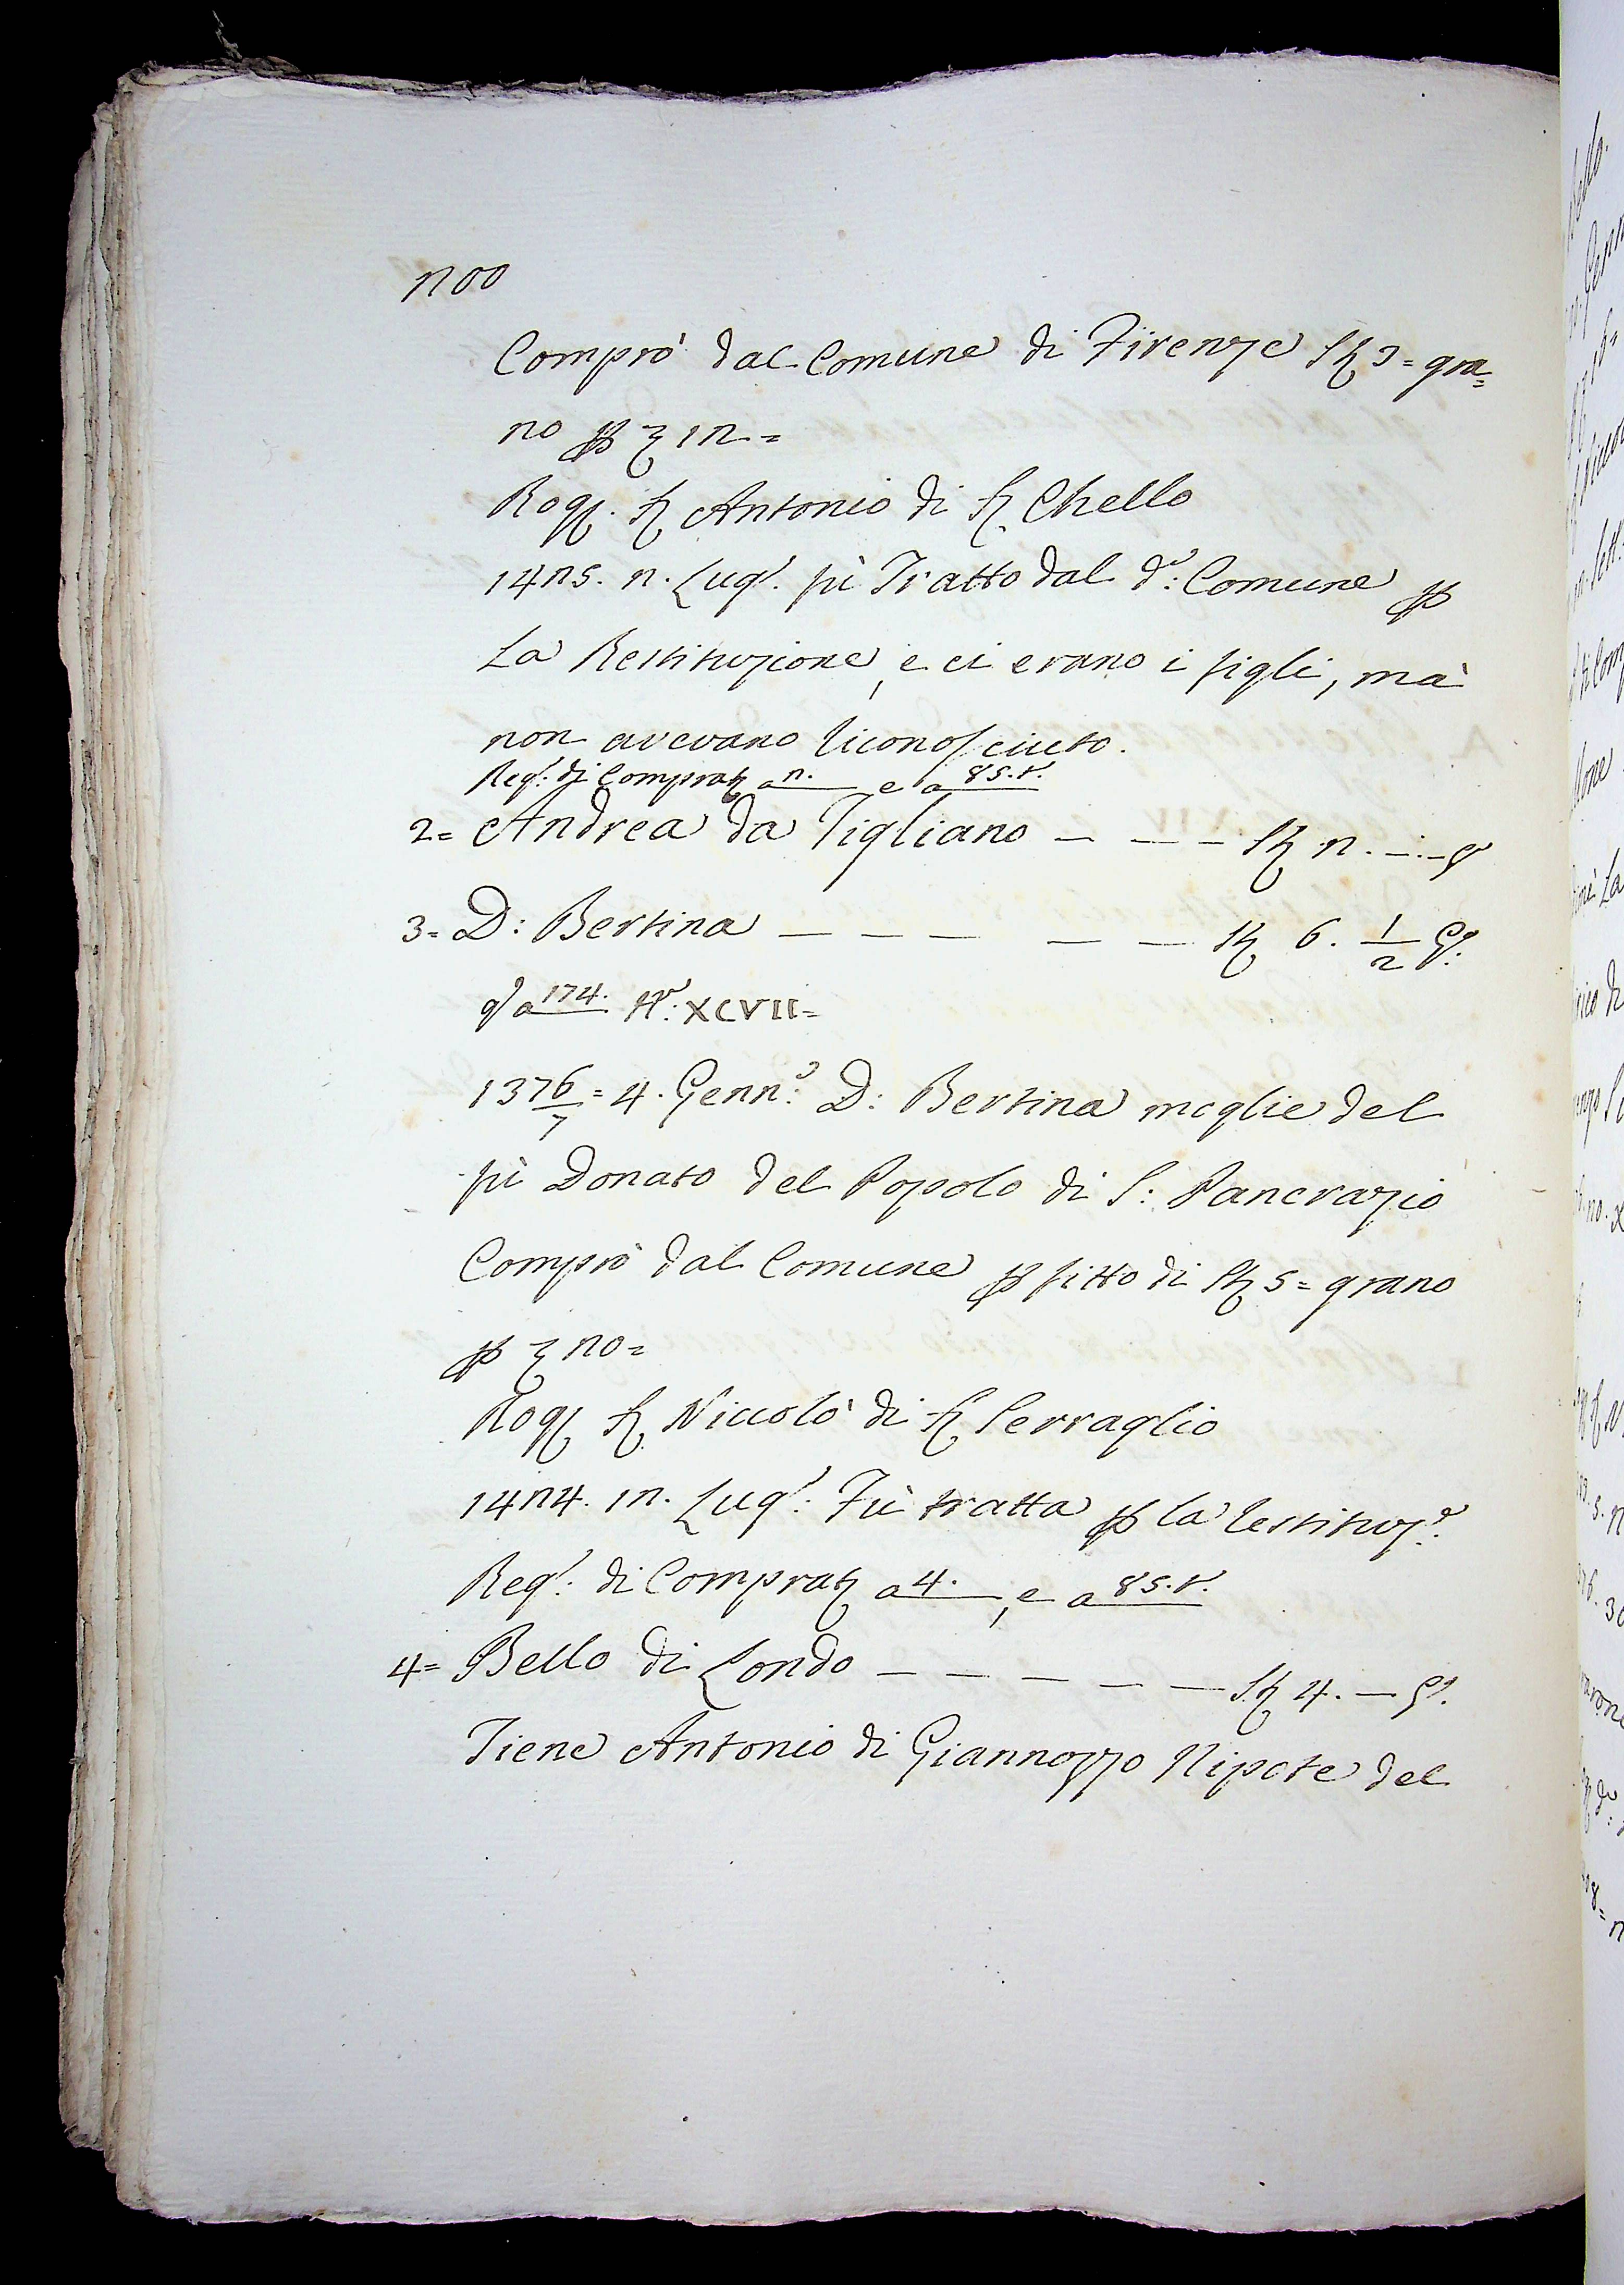 200
Comprò dal Comune di Firenze St 3= gra=
no p 12.=
Rog. S. Antonio di S. Chello
1425. 2. Lug.o fù Tratto dal d.o: Comune p
La Restituzione, e ci erano i figli, mà
non avevano riconosciuto.
Reg.o: di Comprat a 2. e a 85.t.
2= Andrea da Tigliano — — — St 2. —.—g.o
3= D: Bertina — — — — — St 6. 1/2 G.o:
a 174. N.o: XCVII=
1376/7= 4. Genn.o: D: Bertina moglie del
fù Donato del Popolo di S: Pancrazio
Comprò dal Comune p fitto di St 5= grano
p 20=
Rog S. Niccolò di S. Serraglio
1424. 12. Lug.o: Fù tratta p la restituz.e:
Reg.o: di Comprat a 4. , e a 85.t.
4= Bello di Londo — — — — — — St 4. — G.o.
Tiene Antonio di Giannozzo Nipote del